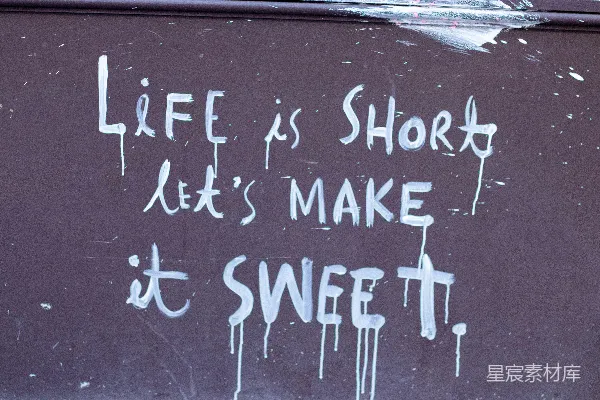 LiFE is SHORt
LEt's MAKE
it SWEET.
星宸素材库